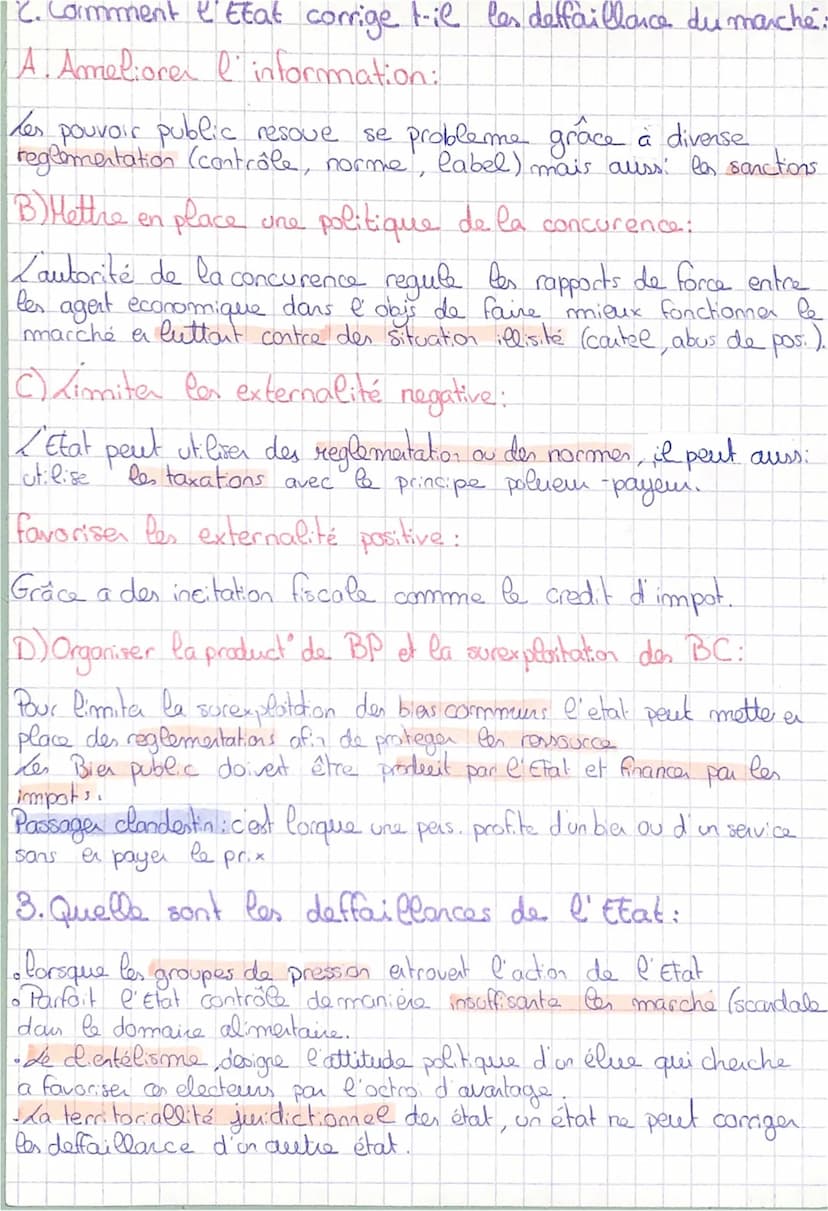 2. Commment l'Etat corrige t-il les deffaillance du marché:
A. Ameliorer l'information:
Les pouvoir public resoue se probleme grâce à diverse
reglementation (contrôle, norme, label) mais aussi les sanctions
B) Mettre en place une politique de la concurence:
L'autorité de la concurence regule les rapports de force entre
les agent économique dans l'objs de faire mieux fonctionner le
marché en luttant contre des situation illisité (cartel, abus de pos.).
C) Limiter les externalité negative:
L'Etat peut utiliser des reglementation ou des normes, il peut aussi
utilise les taxations avec le principe polueur-payeur.
favoriser les externalité positive:
Grâce a des incitation fiscale commme le credit d'impot.
D) Organiser la product° de BP et la surexploitation des BC:
Pour limiter la surexploitation des biens commmuns l'etat peut mettre en
place des reglementations afin de proteger les ressource
Les Bien public doivent être produit par l'Etat et financer par les
impots.
Passager clandestin: c'est lorque une pers. profite d'un bien ou d'un service
sans en payer le prix
3. Quelle sont les deffaillances de l'Etat:
• lorsque les groupes de pression entrovent l'action de l'Etat
• Parfoit l'Etat contrôle de manière insuffisante les marché (scandale
dans le domaine alimentaire.
• Le clientélisme, designe l'attitude politique d'un élue qui cherche
a favoriser ces electeurs par l'octroi d'avantage.
• La territoriallité juridictionnel des état, un état ne peut corriger
les deffaillance d'un autre état.